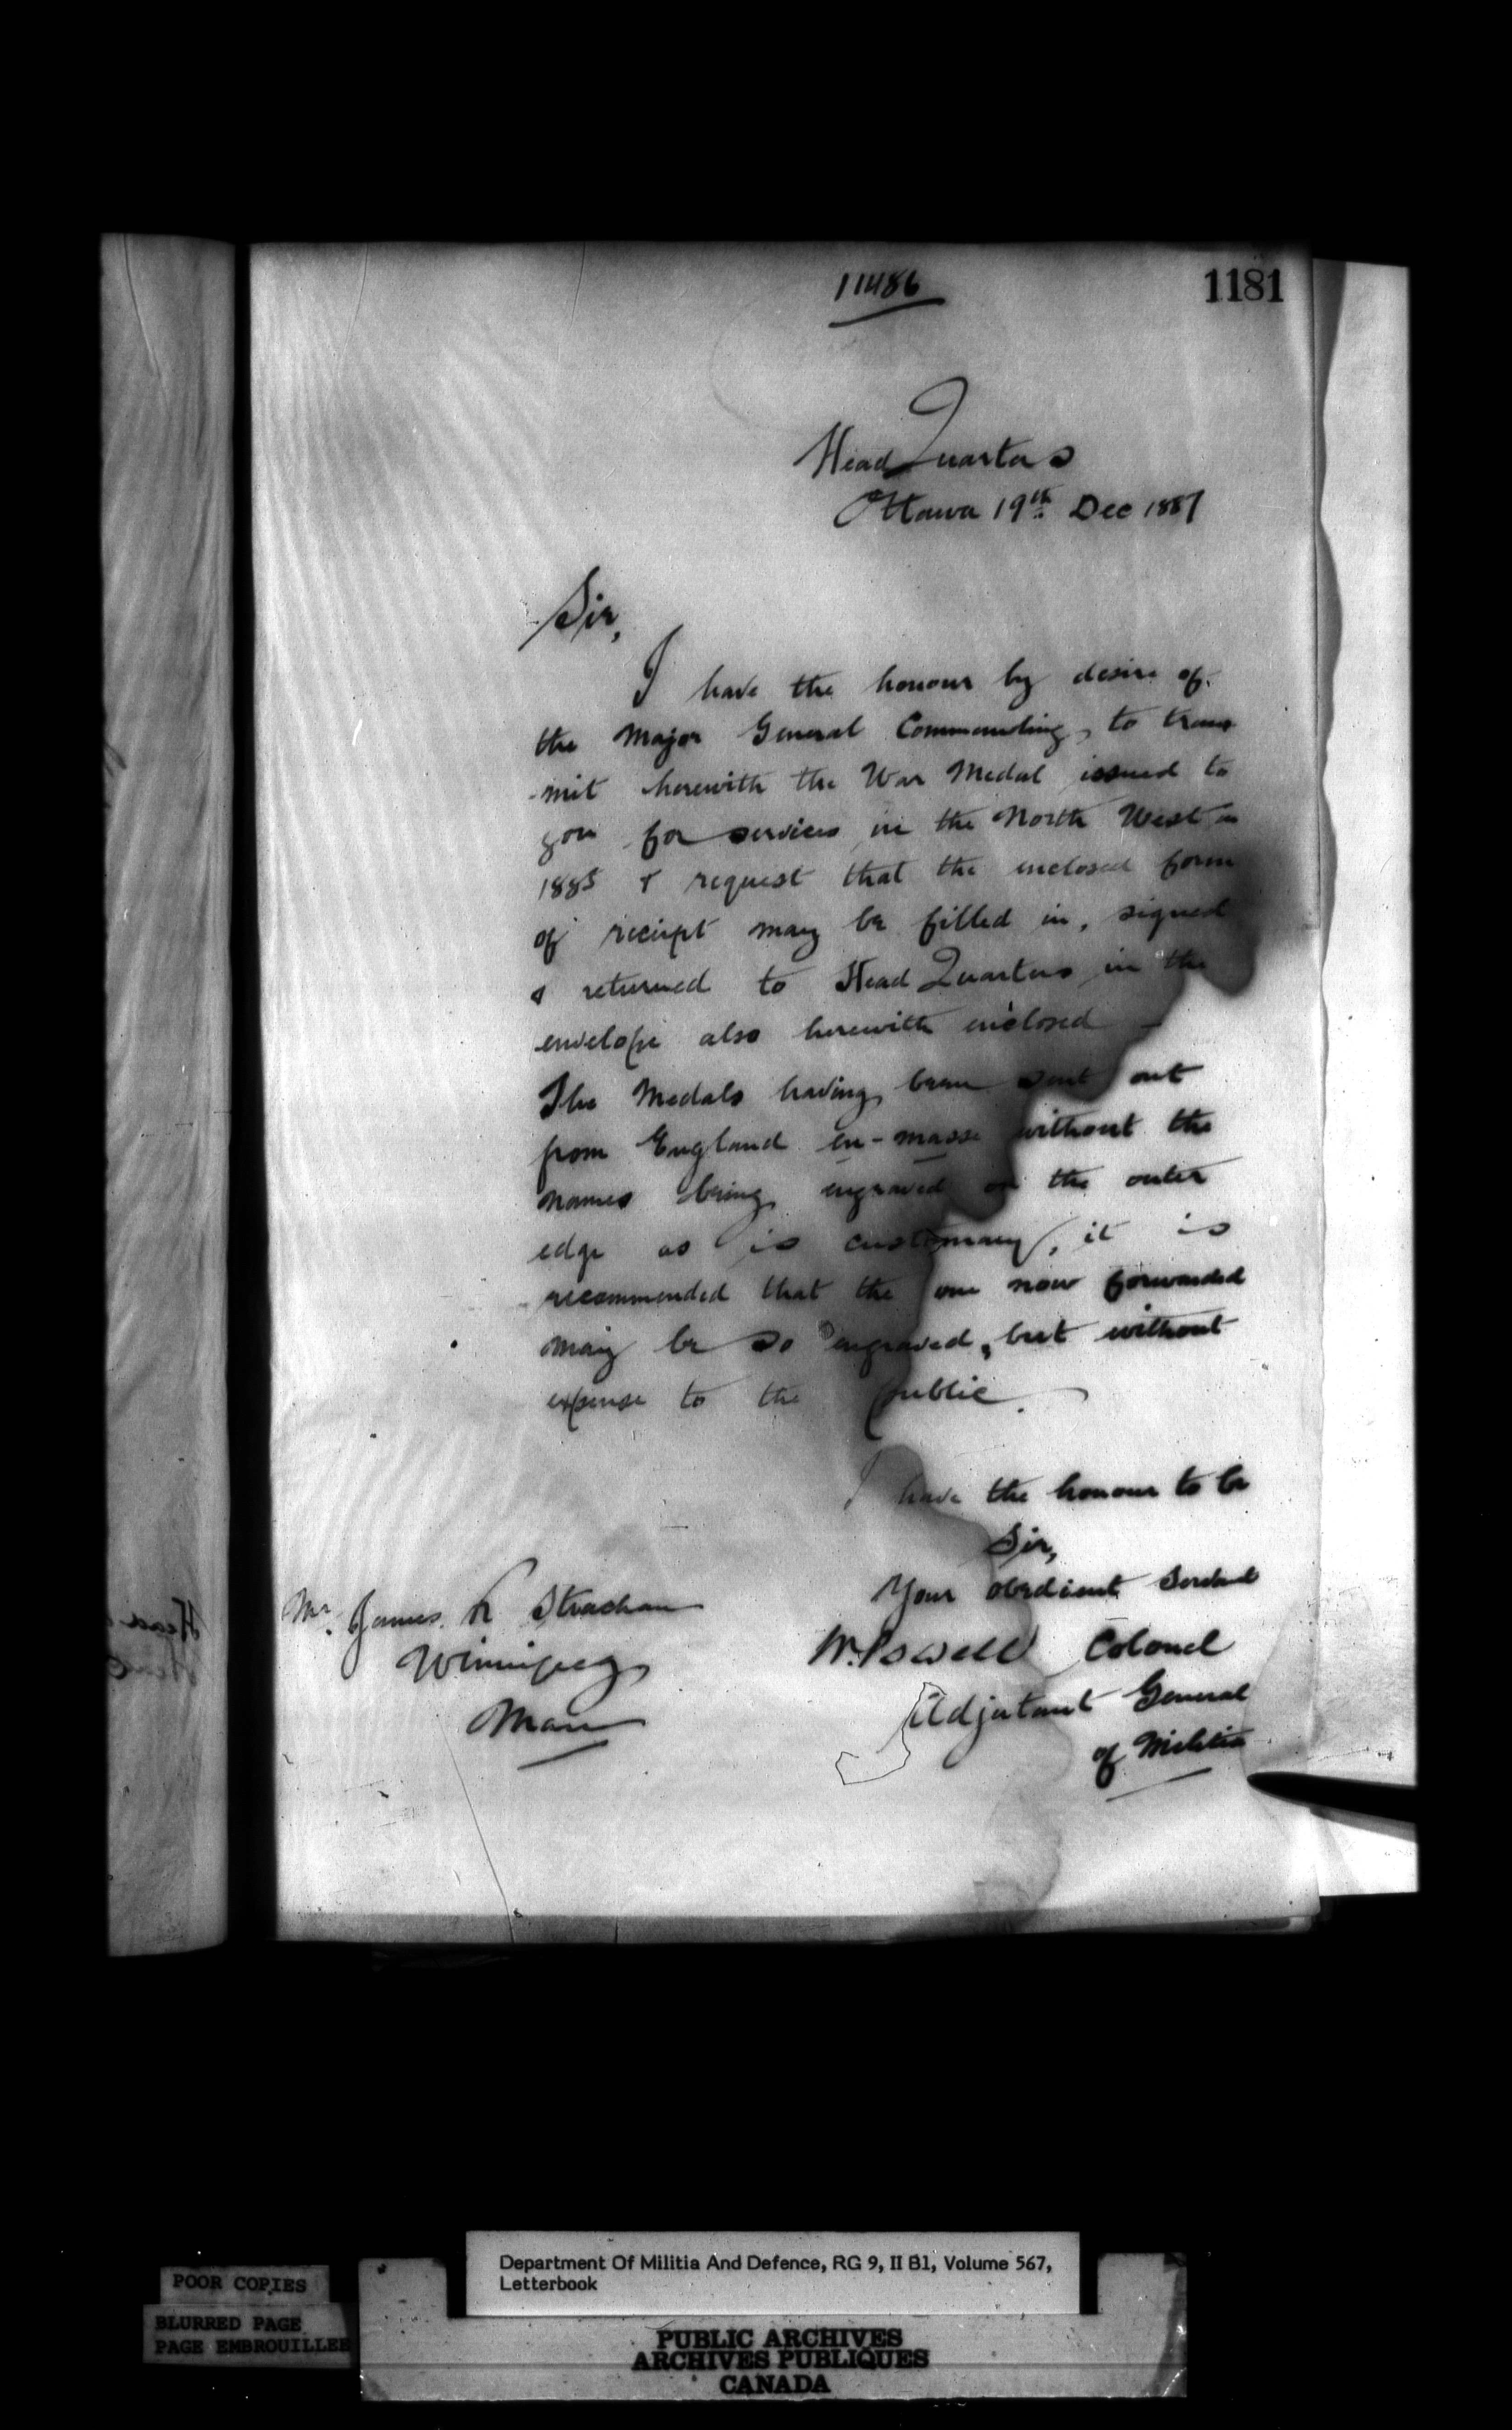 11486
1181
Head Quarters
Ottawa 19th Dec 1887
Sir,
I have the honour by desire of
the Major General Commanding, to trans
-mit herewith the War Medal issued to
you for services in the North West in
1885 & request that the enclosed form
of receipt may be filled in, signed
& returned to Head Quarters in the
envelope also herewith enclosed —
The Medals having been sent out
from England en-masse without the
names being engraved on the outer
edge as is customary, it is
recommended that the one now forwarded
may be so engraved, but without
expense to the public.
I have the honour to be
Sir,
Your obedient Servant
W. Powell Colonel
Adjutant General
of Militia
Mr. James R Strachan
Winnipeg
Man
Department Of Militia And Defence, RG 9, II B1, Volume 567,
Letterbook
POOR COPIES
BLURRED PAGE
PAGE EMBROUILLEE
PUBLIC ARCHIVES
ARCHIVES PUBLIQUES
CANADA